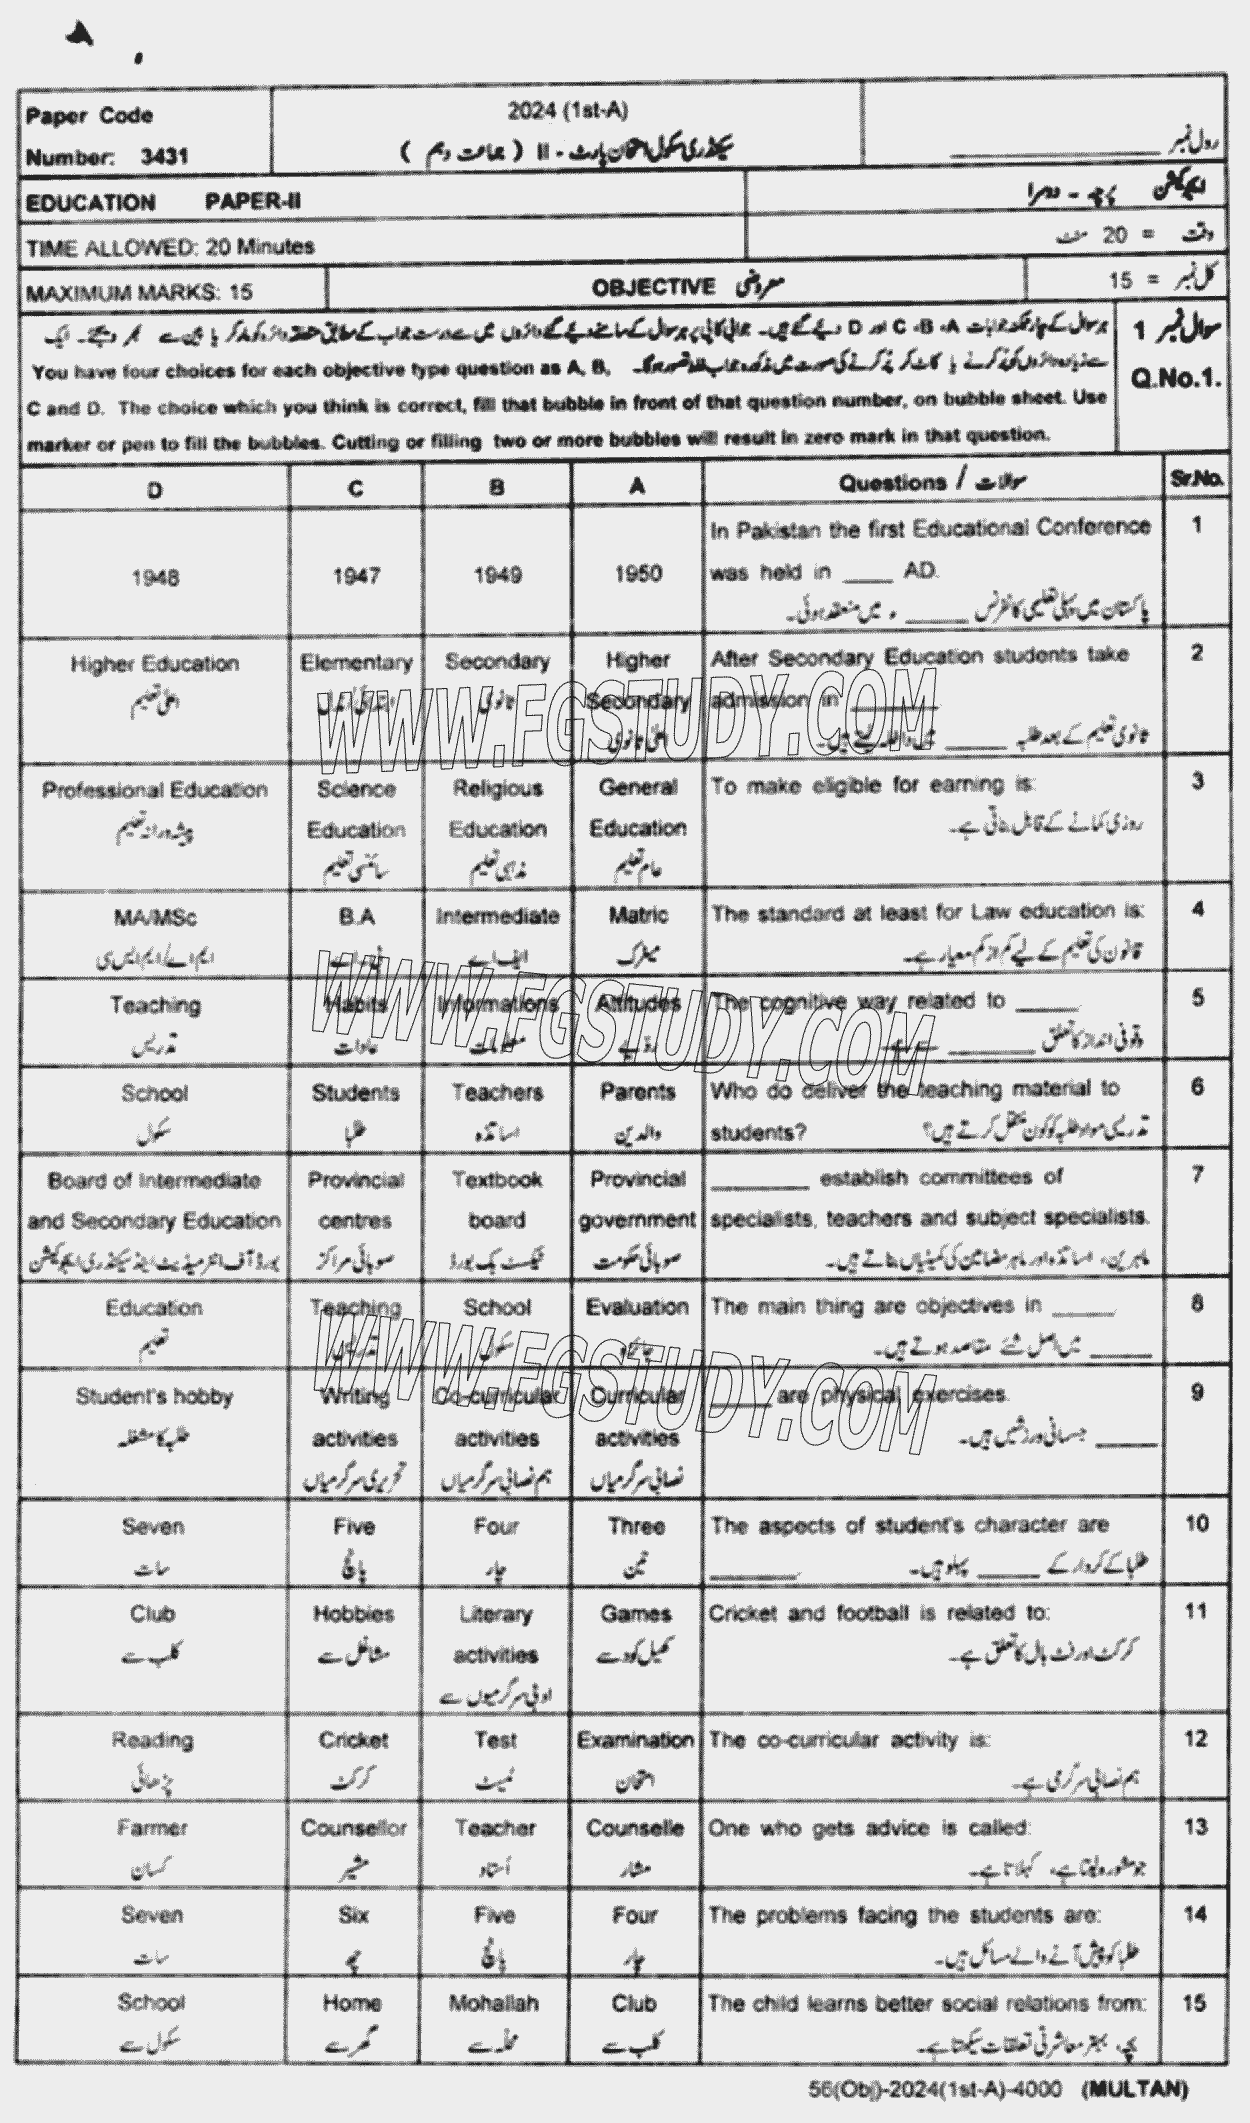 Paper Code
Number: 3431
2024 (1st-A)
سیکنڈری سکول امتحان پارٹ - II ( جماعت دہم )
رول نمبر
EDUCATION PAPER-II
ایجوکیشن پرچہ - دوسرا
TIME ALLOWED: 20 Minutes
وقت = 20 منٹ
MAXIMUM MARKS: 15
OBJECTIVE معروضی
کل نمبر = 15
سوال نمبر 1
Q.No.1.
ہر سوال کے چار ممکنہ جوابات A، B، C اور D دیئے گئے ہیں۔ جوابی کاپی پر ہر سوال کے سامنے دیئے گئے دائروں میں سے درست جواب کے مطابق متعلقہ دائرہ کو مارکر یا پین سے بھر دیجئے۔ ایک
سے زیادہ دائروں کو پُر کرنے یا کاٹ کر پُر کرنے کی صورت میں مذکورہ جواب غلط تصور ہوگا۔ You have four choices for each objective type question as A, B,
C and D. The choice which you think is correct, fill that bubble in front of that question number, on bubble sheet. Use
marker or pen to fill the bubbles. Cutting or filling two or more bubbles will result in zero mark in that question.
D C B A Questions / سوالات Sr.No.
1948 1947 1949 1950
In Pakistan the first Educational Conference 1
was held in ____ AD.
پاکستان میں پہلی تعلیمی کانفرنس _____ ء میں منعقد ہوئی۔
Higher Education Elementary Secondary Higher After Secondary Education students take 2
اعلیٰ تعلیم ثانوی Secondary admission in ________
اعلیٰ ثانوی ثانوی تعلیم کے بعد طلبہ _____ میں داخلہ لیتے ہیں۔
Professional Education Science Religious General To make eligible for earning is: 3
پیشہ ورانہ تعلیم Education Education Education روزی کمانے کے قابل بناتی ہے۔
سائنسی تعلیم مذہبی تعلیم عام تعلیم
MA/MSc B.A Intermediate Matric The standard at least for Law education is: 4
ایم اے/ایم ایس سی بی اے ایف اے میٹرک قانون کی تعلیم کے لیے کم از کم معیار ہے۔
Teaching Habits Informations Attitudes The cognitive way related to _____ 5
تدریس عادات معلومات رویے وقوفی انداز کا تعلق _______ سے ہے۔
School Students Teachers Parents Who do deliver the teaching material to 6
سکول طلبا اساتذہ والدین students? تدریسی مواد طلبہ کو کون منتقل کرتے ہیں؟
Board of Intermediate Provincial Textbook Provincial ________ establish committees of 7
and Secondary Education centres board government specialists, teachers and subject specialists.
بورڈ آف انٹرمیڈیٹ اینڈ سیکنڈری ایجوکیشن صوبائی مراکز ٹیکسٹ بک بورڈ صوبائی حکومت ماہرین، اساتذہ اور ماہر مضامین کی کمیٹیاں بناتے ہیں۔
Education Teaching School Evaluation The main thing are objectives in _____ 8
تعلیم تدریس سکول جائزہ _____ میں اصل شئے مقاصد ہوتے ہیں۔
Student's hobby Writing Co-curricular Curricular _____ are physical exercises. 9
طلبہ کا مشغلہ activities activities activities _____ جسمانی ورزشیں ہیں۔
تحریری سرگرمیاں ہم نصابی سرگرمیاں نصابی سرگرمیاں
Seven Five Four Three The aspects of student's character are 10
سات پانچ چار تین _______. طلبا کے کردار کے _____ پہلو ہیں۔
Club Hobbies Literary Games Cricket and football is related to: 11
کلب سے مشاغل سے activities کھیل کود سے کرکٹ اور فٹ بال کا تعلق ہے۔
ادبی سرگرمیوں سے
Reading Cricket Test Examination The co-curricular activity is: 12
پڑھائی کرکٹ ٹیسٹ امتحان ہم نصابی سرگرمی ہے۔
Farmer Counsellor Teacher Counselle One who gets advice is called: 13
کسان مشیر اُستاد مشار جو مشورہ لیتا ہے، کہلاتا ہے۔
Seven Six Five Four The problems facing the students are: 14
سات چھ پانچ چار طلبا کو پیش آنے والے مسائل ہیں۔
School Home Mohallah Club The child learns better social relations from: 15
سکول سے گھر سے محلہ سے کلب سے بچہ بہتر معاشرتی تعلقات سیکھتا ہے۔
56(Obj)-2024(1st-A)-4000 (MULTAN)
WWW.FGSTUDY.COM
WWW.FGSTUDY.COM
WWW.FGSTUDY.COM